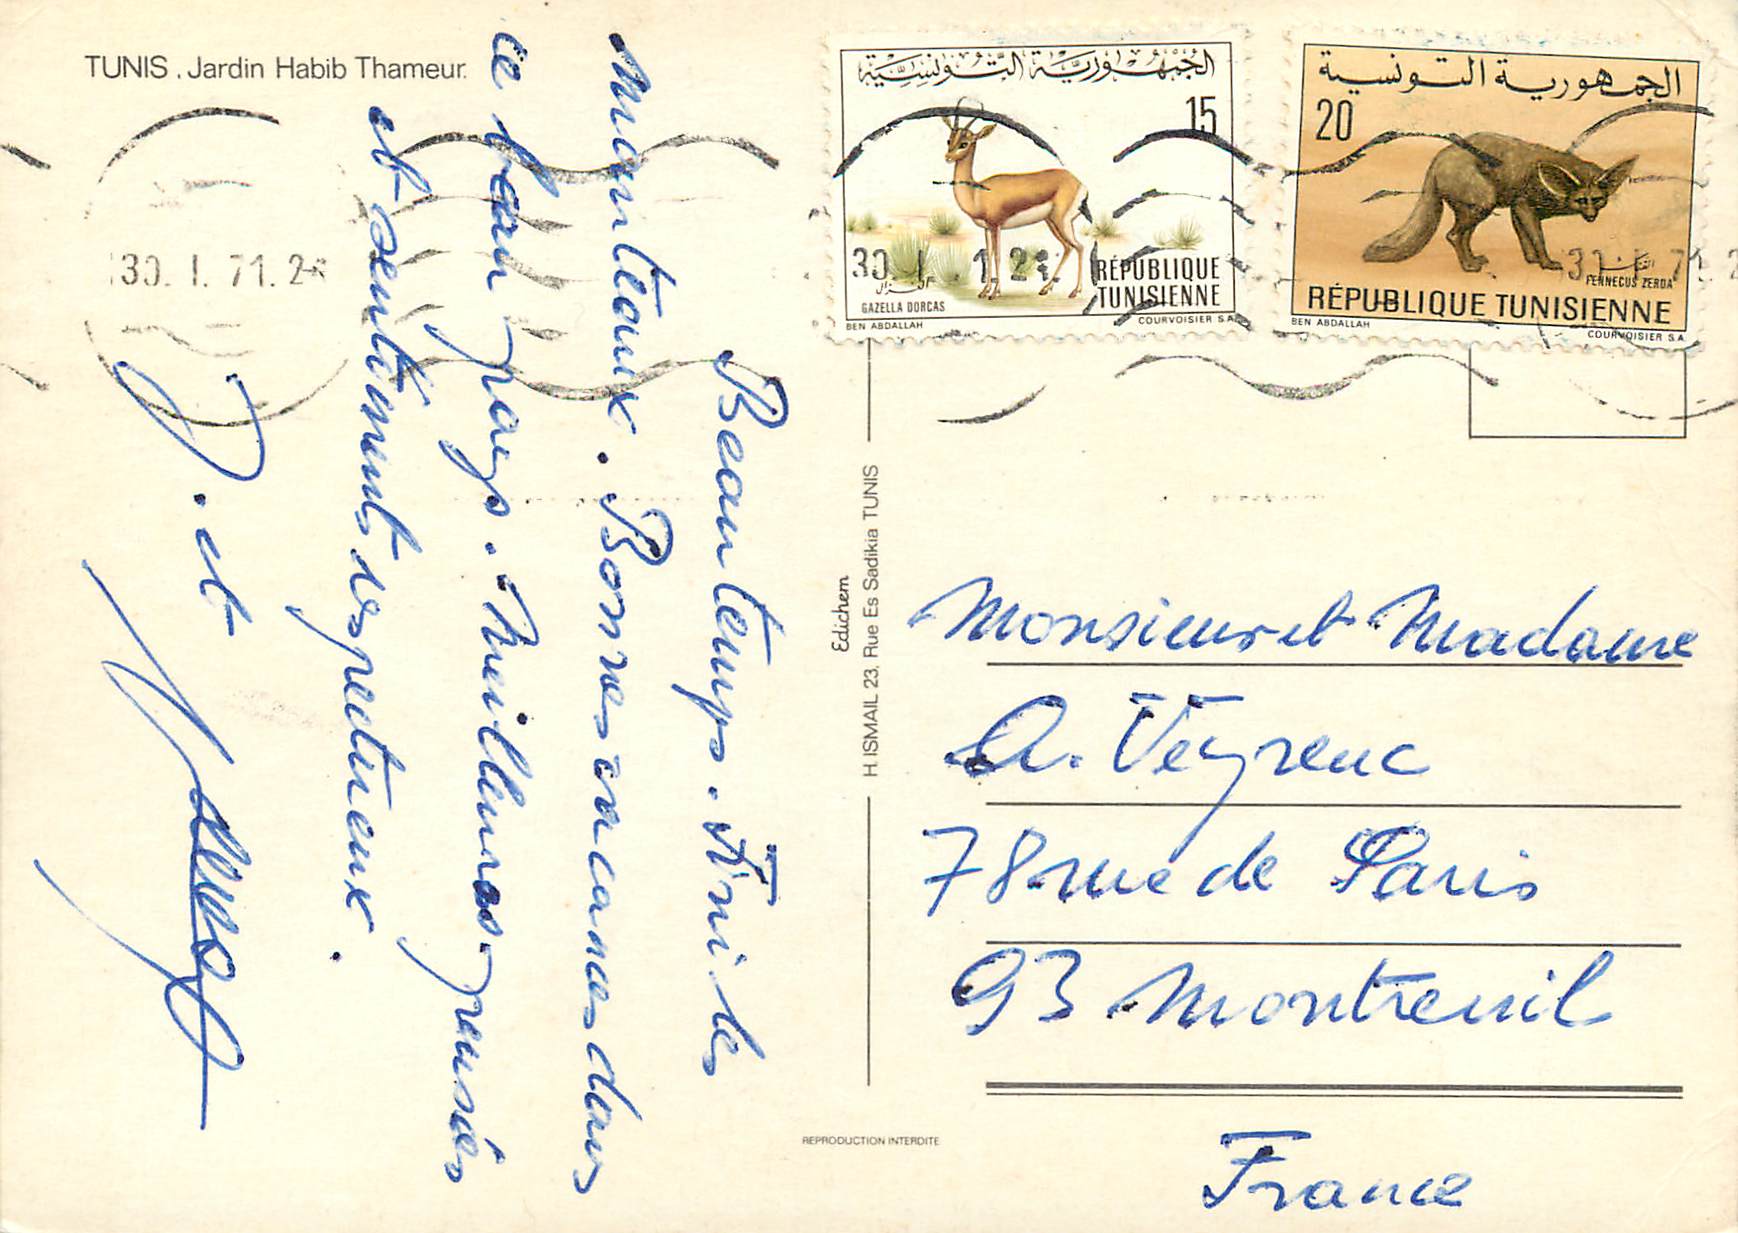 TUNIS . Jardin Habib Thameur.
Beau temps. Fini les
manteaux. Bonnes vacances dans
ce beau pays. Meilleures pensées
et sentiments respectueux.
J. et
الجمهورية التونسية
15
RÉPUBLIQUE
TUNISIENNE
GAZELLA DORCAS
BEN ABDALLAH
COURVOISIER S.A.
الجمهورية التونسية
20
FENNECUS ZERDA
RÉPUBLIQUE TUNISIENNE
BEN ABDALLAH
COURVOISIER S.A.
30. 1. 71. 2
30 1 1 2
30 1 71. 2
Edichem
H. ISMAIL 23, Rue Es Sadikia TUNIS
REPRODUCTION INTERDITE
Monsieur et Madame
A. Veyrenc
78 rue de Paris
93 Montreuil
France